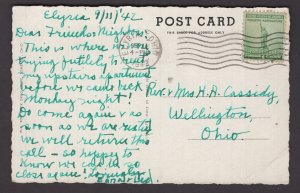 Elyria 9/11/'42
POST CARD
Dear Friends & Neighbors
This is where I'm
trying futilely to rent
my upstairs apartment
before we came back
Monday night!
Do come again & as
soon as we are rested
we will return this
call - so happy to
know we could be
close again!
Rev. & Mrs. H. H. Cassidy,
Wellington,
Ohio.